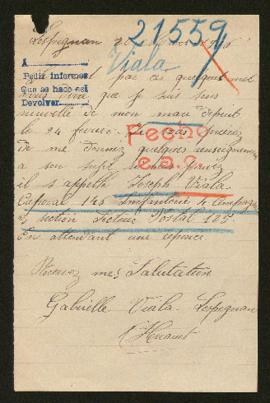 21559
Lespignan
Viala
A
Pedir informes
Que se hace así
Devolver
par ces quelques mot
que je suis sans
nouvelle de mon mari depuis
le 24 février
de me donner quelques renseignements
a son sujet
Fecho
e.a.c.
il s appelle Joseph Viala
Caporal 146 Infanterie
section Secteur Postal 105
En attendant une reponce
Recevez mes Salutation
Gabrielle Viala Lespignan
Herault